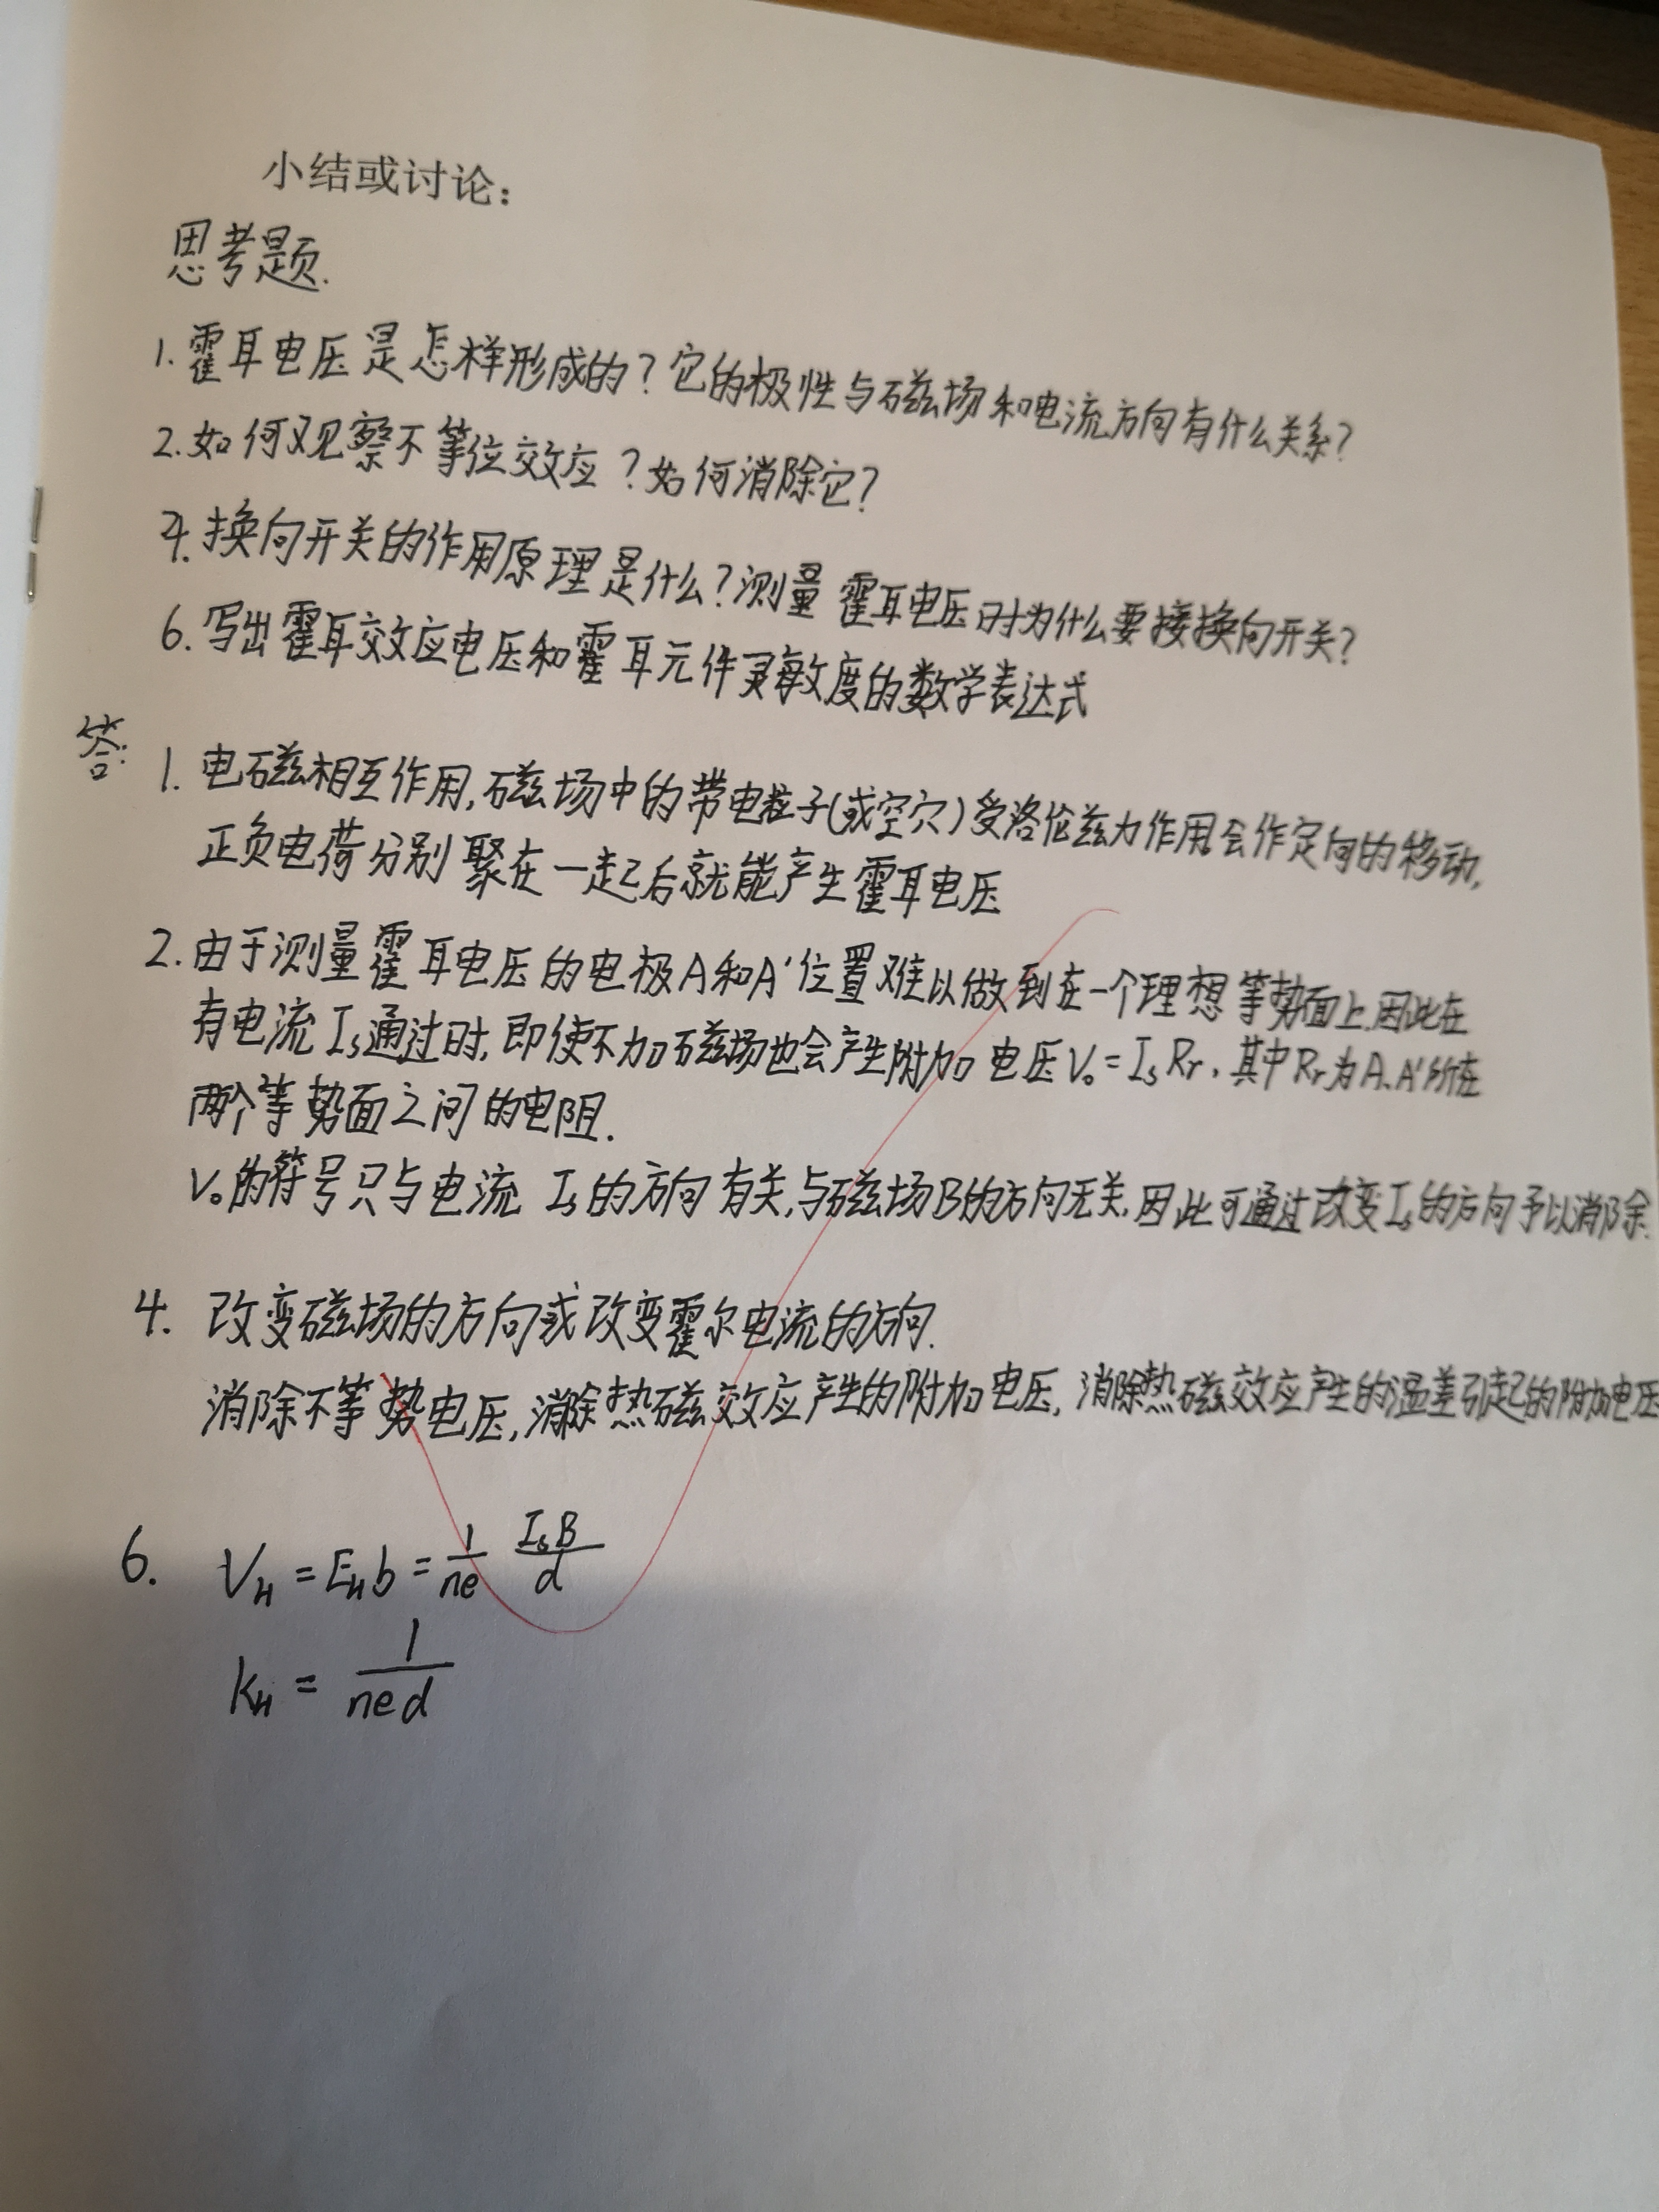 小结或讨论：
思考题.
1. 霍耳电压是怎样形成的？它的极性与磁场和电流方向有什么关系？
2. 如何观察不等位效应？如何消除它？
4. 换向开关的作用原理是什么？测量霍耳电压时为什么要接换向开关？
6. 写出霍耳效应电压和霍耳元件灵敏度的数学表达式
答: 1. 电磁相互作用,磁场中的带电粒子(或空穴)受洛伦兹力作用会作定向的移动,
正负电荷分别聚在一起后就能产生霍耳电压
2. 由于测量霍耳电压的电极A和A'位置难以做到在一个理想等势面上,因此在
有电流 Is通过时,即使不加磁场也会产生附加电压V₀=IsRr,其中Rr为A、A'所在
两个等势面之间的电阻.
V₀的符号只与电流 Is的方向有关,与磁场B的方向无关,因此可通过改变Is的方向予以消除.
4. 改变磁场的方向或改变霍尔电流的方向.
消除不等势电压,消除热磁效应产生的附加电压,消除热磁效应产生的温差引起的附加电压
6. V_H = E_H b = \frac{1}{ne} \frac{IsB}{d}
k_H = \frac{1}{ned}